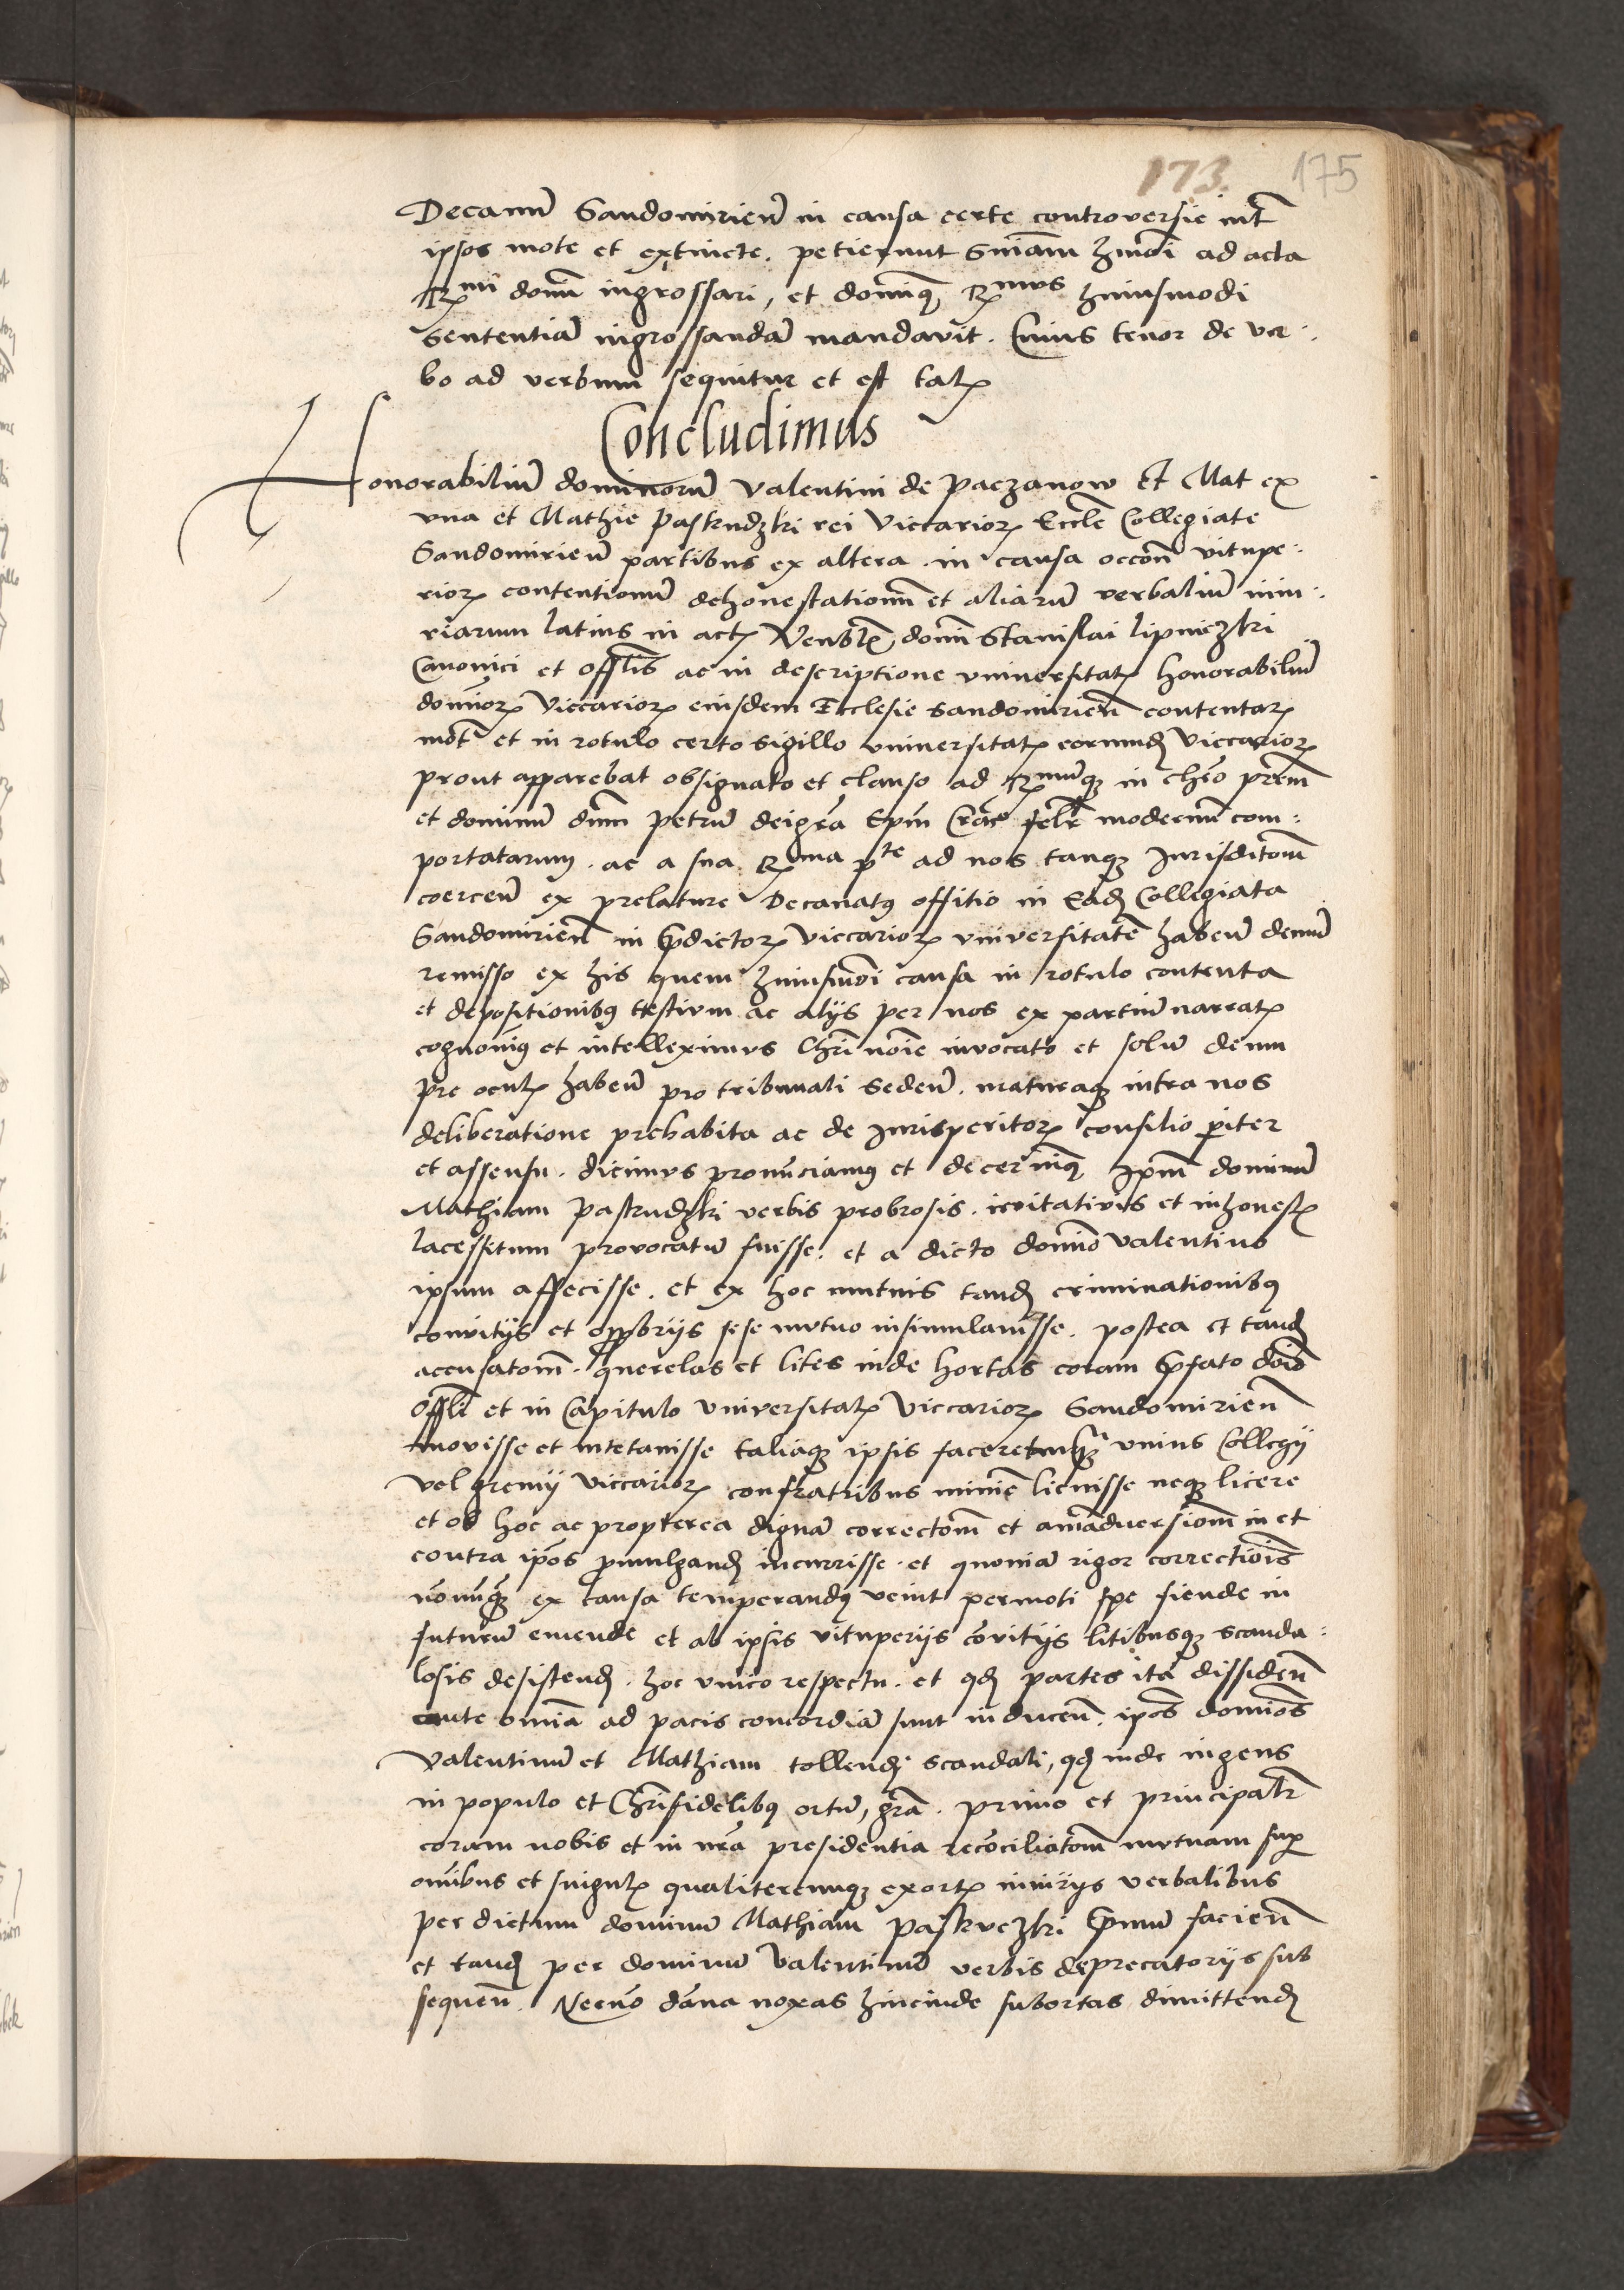 173. 175
Decanũ Sandomirieñ in causa certe controversie int̃
ipsos mote et extincte. petierunt Sniãm hmõi ad acta
Rmi domĩ ingrossari, et dominꝯ Rmus huiusmodi
sententiã ingrossandã mandavit. Cuius tenor de ver
bo ad verbum sequitur et est talꝭ
Concludimus
Honorabiliũ dominorũ Valentini de Paczanow Et Mat ex
vna et Mathie Paskudzki rei Viccarioꝝ Eccle Collegiate
Sandomirieñ partibus ex altera. in causa occoñ vitupe:
rioꝝ contentionũ dehonestationũ et aliarũ verbaliũ iniu:
riarum latius in actꝭ Venblꝭ domĩ Stanislai lipniczki
Canonici et Offlis ac in descriptione vniversitatꝭ honorabiliũ
dominoꝝ Viccarioꝝ eiusdem Ecclesie Sandomirieñ contentaꝝ
mot̃ et in rotulo certo sigillo vniversitatꝭ eorundẽ Viccarioꝝ
prout apparebat obsignato et clauso ad Rmũqꝫ in chro prẽm
et dominũ dnm Petrũ dei grã Epũ Crac felr̃ modernũ com:
portatarum. ac a sua Rma pte ad nos tanqꝫ Jurisditoñm
coerceñ ex prelature Decanatꝯ offitio in Eadẽ Collegiata
Sandomirieñ in p̃dictoꝝ Viccarioꝝ vniversitatẽ habeñ demũ
remisso ex his quem huiusmõi causa in rotulo contenta
et depositionibꝯ testium ac alijs per nos ex partiũ narratꝭ
cognovimꝯ et intelleximus Chri noĩe invocato et solũ deum
pre oculꝭ habeñ pro tribunali sedeñ. maturaqꝫ intra nos
deliberatione prehabita ac de Jurisperitoꝝ consilio p̃iter
et assensu. dicimus pronũciamꝯ et decernimꝯ Ipm̃ dominũ
Mathiam Paskudzki verbis probrosis. irritativis et inhonestꝭ
lacessitum provocatũ fuisse. et a dicto domino Valentino
ipsum affecisse. et ex hoc mutuis tandẽ criminationibꝯ
convitijs et opprobrijs sese mutuo insimulavisse. postea et tandẽ
accusatoñm. querelas et lites inde hortas coram p̃fato doĩo
Offli et in Capitulo Vniversitatꝭ Viccarioꝝ Sandomirieñ
movisse et intetavisse taliaqꝫ ipsis facere tanqꝫ vnius Collegij
vel gremij Viccarioꝝ confratribus minime licuisse neqꝫ licere
et ob hoc ac propterea dignã correctoñm et amãdversioñm in et
contra ipõs pmulgandẽ incurrisse. et quoniã rigor correctiõis
nõnũqꝫ ex causa temperandꝯ venit permoti spe fiende in
futurũ emende et ab ipsis vituperijs cõvitijs litibusqꝫ scanda:
losis desistendẽ. hoc vnico respectu. et qdẽ partes ita dissideñ
ante oмнia ad pacis concordiã sunt induceñ. ipõs dominõs
Valentinũ et Mathiam tollendi scandali, qdẽ inde ingens
in populo et Chrifidelibꝯ ortũ, grã. primo et principalr̃
coram nobis et in nr̃a presidentia recõciliatoñm mutuam sup
omĩbus et singulꝭ qualitercunqꝫ exortꝭ iniurijs verbalibus
per dictum dominũ Mathiam Paskuczki p̃mũ facieñ
et tandẽ per dominũ Valentinũ verbis deprecatorijs sub
sequeñ. Necnõ dãna noxas hincinde subortas dimittendẽ